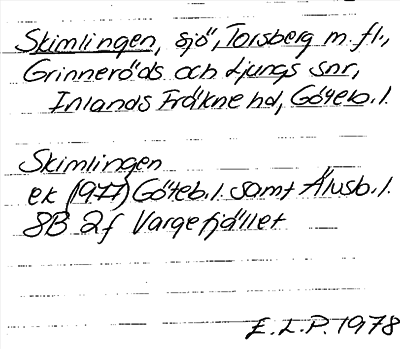 Skimlingen, sjö, Torsberg m. fl.,
Grinneröds och Ljungs snr,
Inlands Fräkne hd, Göteb. l.
Skimlingen
ek (1977) Göteb. l. samt Älvsb. l.
8B 2f Vargefjället
E. L. P. 1978